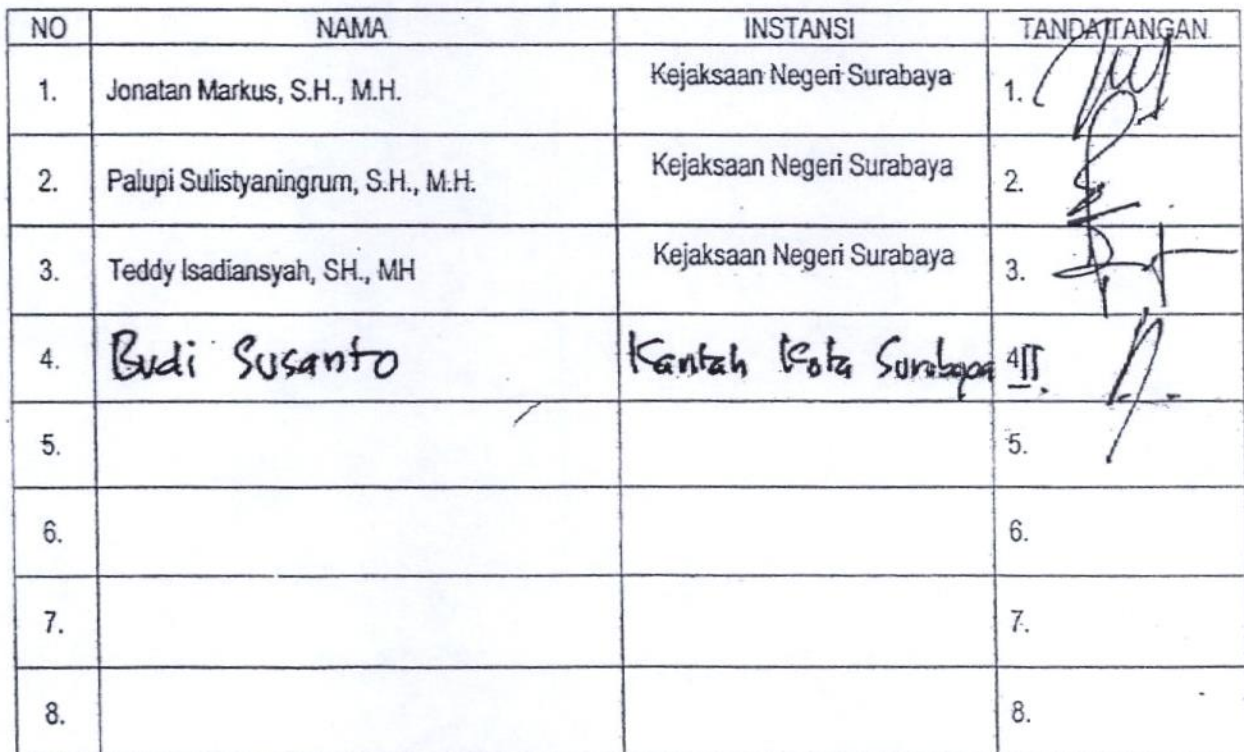 NO NAMA INSTANSI TANDA TANGAN
1. Jonatan Markus, S.H., M.H. Kejaksaan Negeri Surabaya 1.
2. Palupi Sulistyaningrum, S.H., M.H. Kejaksaan Negeri Surabaya 2.
3. Teddy Isadiansyah, SH., MH Kejaksaan Negeri Surabaya 3.
4. Budi Susanto Kantah Kota Surabaya II. 4
5. 5.
6. 6.
7. 7.
8. 8.